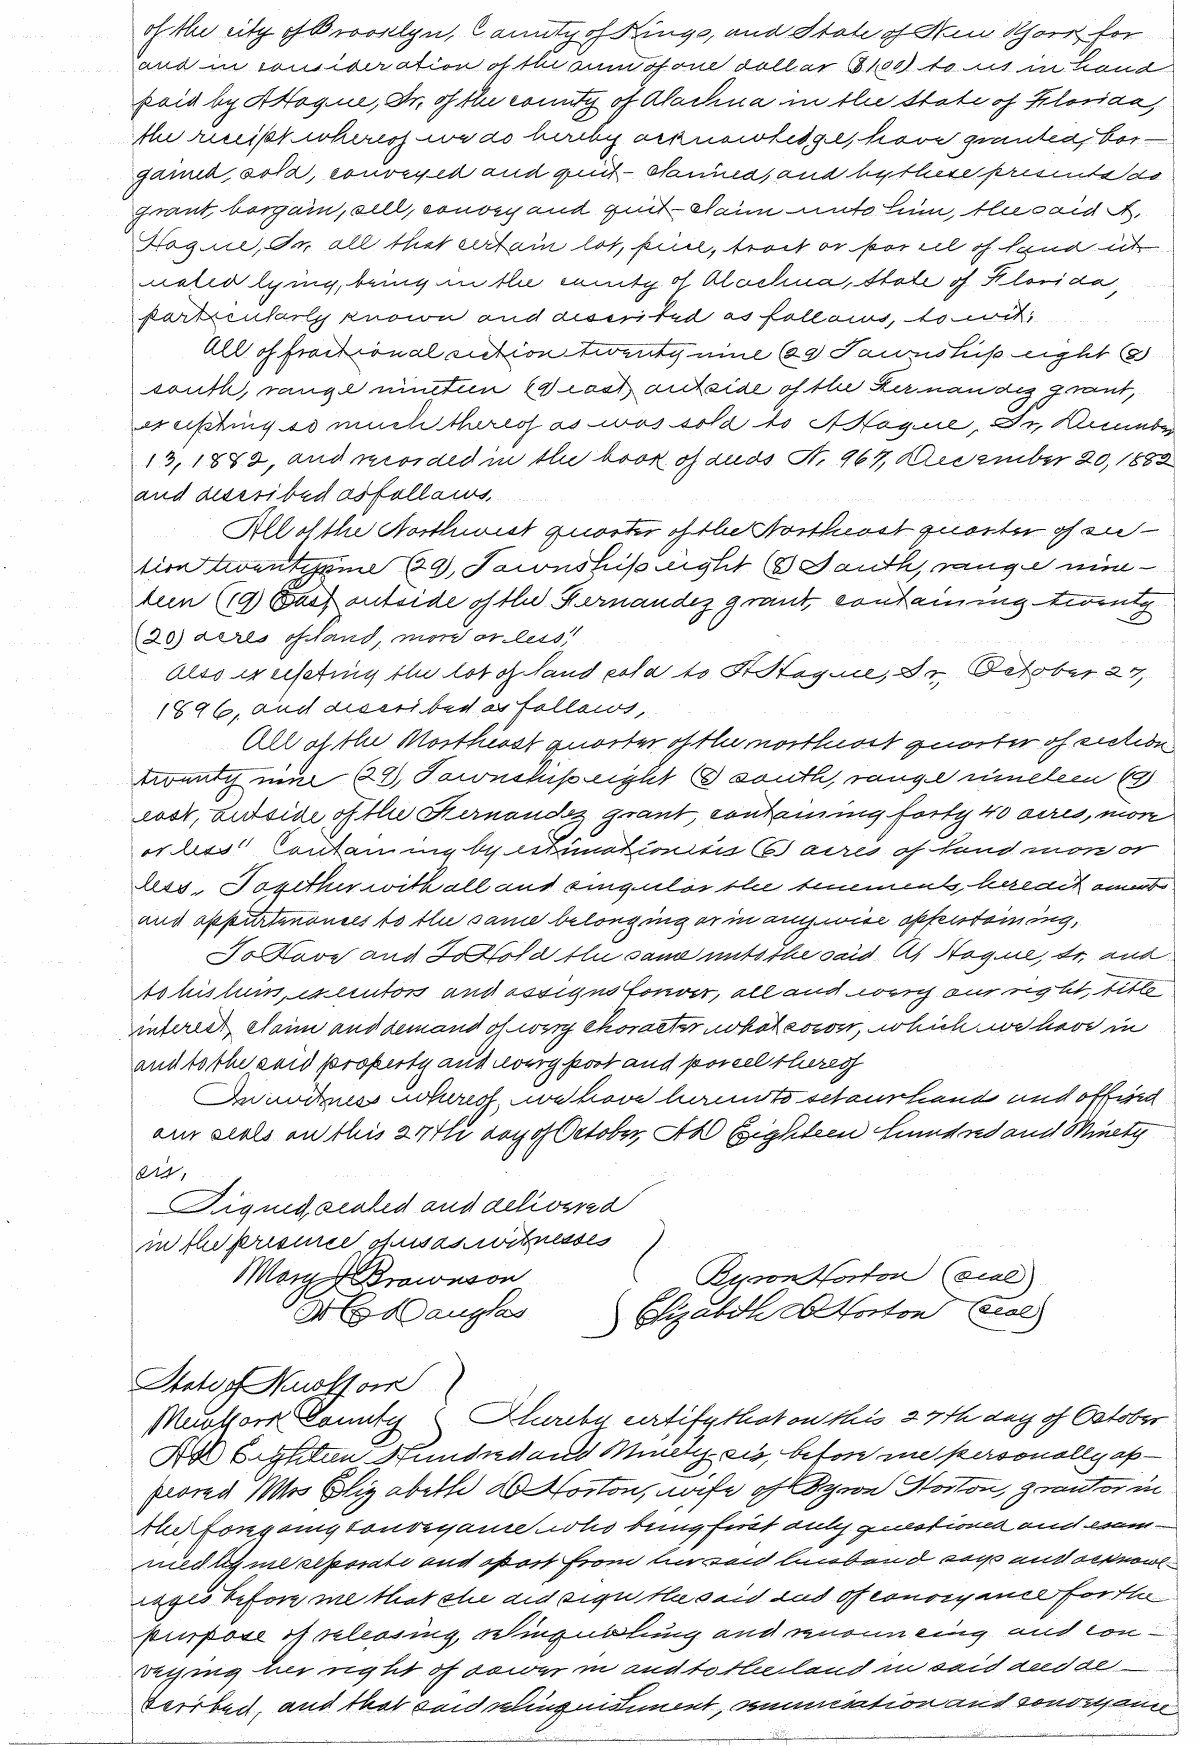 of the city of Brooklyn, County of Kings, and State of New York, for
and in consideration of the sum of one dollar ($1.00) to us in hand
paid by A Hague, Sr. of the county of Alachua in the State of Florida,
the receipt whereof we do hereby acknowledge, have granted, bar-
gained, sold, conveyed and quit-claimed, and by these presents do
grant, bargain, sell, convey and quit-claim unto him, the said A.
Hague, Sr. all that certain lot, piece, tract or parcel of land sit
uated lying, being in the county of Alachua, State of Florida,
particularly known and described as follows, to wit:
All of fractional section twenty nine (29) Township eight (8)
south, range nineteen (19) east, outside of the Fernandez grant,
excepting so much thereof as was sold to A Hague, Sr., December
13, 1882, and recorded in the book of deeds N. 967, December 20, 1882
and described as follows.
All of the Northwest quarter of the Northeast quarter of sec-
tion twenty nine (29), Township eight (8) South, range nine-
teen (19) East, outside of the Fernandez grant, containing twenty
(20) acres of land, more or less,"
Also excepting the lot of land sold to A Hague, Sr., October 27,
1896, and described as follows,
All of the Northeast quarter of the northeast quarter of section
twenty nine (29), Township eight (8) south, range nineteen (19)
east, outside of the Fernandez grant, containing forty 40 acres, more
or less" Containing by estimation six (6) acres of land more or
less. Together with all and singular the tenements, heredit aments
and appurtenances to the same belonging or in anywise appertaining.
To Have and To Hold the same unto the said A, Hague, Sr. and
to his heirs, executors and assigns forever, all and every our right, title
interest, claim and demand of every character whatsoever, which we have in
and to the said property and every part and parcel thereof
In witness whereof, we have hereunto set our hands and affixed
our seals on this 27th day of October, AD Eighteen hundred and Ninety
six,
Signed, sealed and delivered
in the presence of us as witnesses
Mary J Brownson Byron Horton (seal)
Douglas Elizabeth D Horton (seal)
State of New York
New York County I hereby certify that on this 27th day of October
AD Eighteen Hundred and Ninety six, before me personally ap-
peared Mrs Elizabeth D Horton, wife of Byron Horton, grantor in
the foregoing conveyance who being first duly questioned and exam-
ined by me separate and apart from her said husband says and acknowl-
edges before me that she did sign the said deed of conveyance for the
purpose of releasing, relinquishing and renouncing and con-
veying her right of dower in and to the land in said deed de-
scribed, and that said relinquishment, renunciation and conveyance